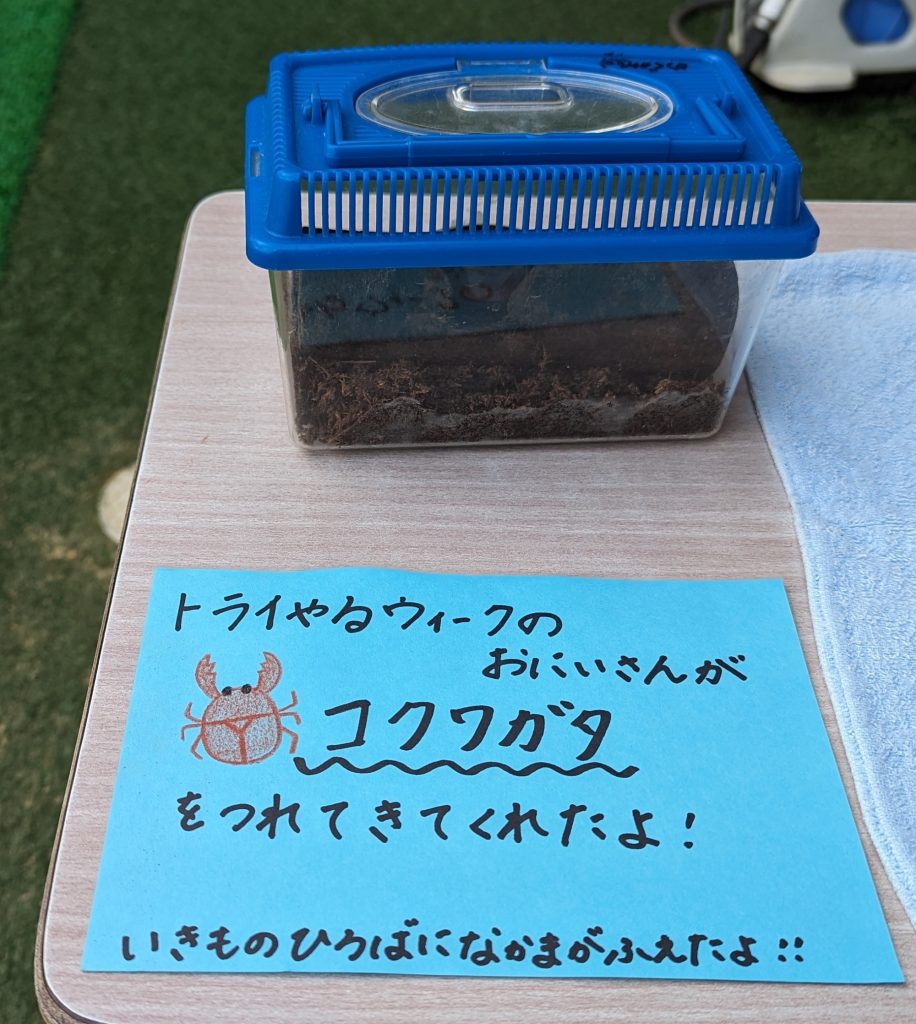 トライやるウィークの
おにいさんが
コクワガタ
をつれてきてくれたよ!
いきものひろばになかまがふえたよ!!